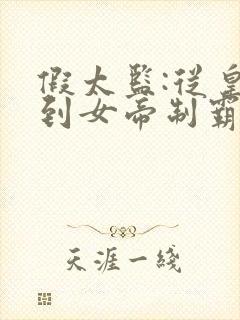 假太監:從皇
到女帝制霸
天涯一綫